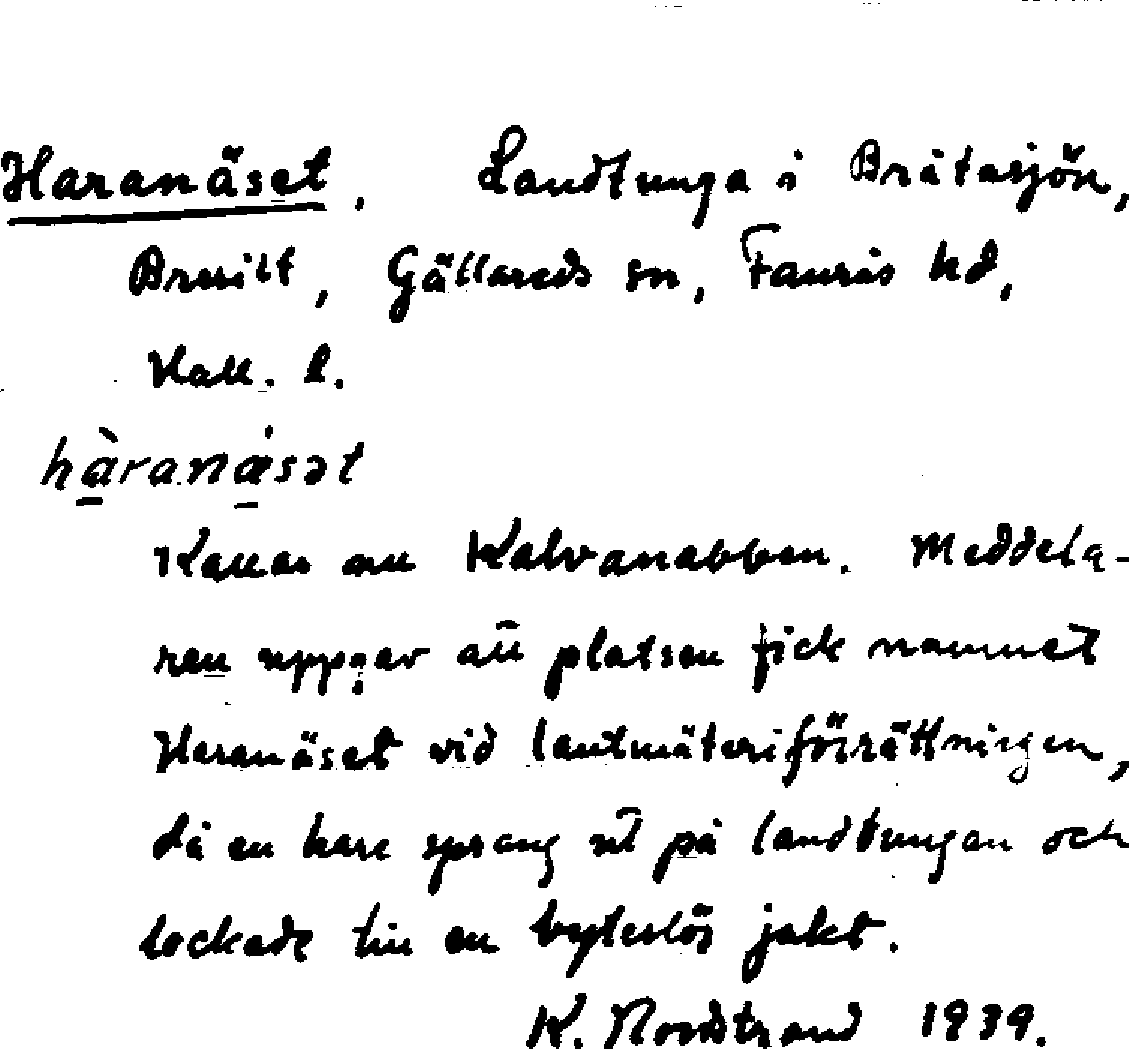 Haranäset, Landtunga i Bråtasjön,
Brusilt, Gällareds sn, Faurås hd,
Hall. l.
hàranǽsət
Kallas nu Kalvanabben. Meddela-
ren uppger att platsen fick namnet
Haranäset vid lantmäteriförrättningen,
då en hare sprang ut på landtungan och
lockade till en byteslös jakt.
K. Nordstrand 1939.